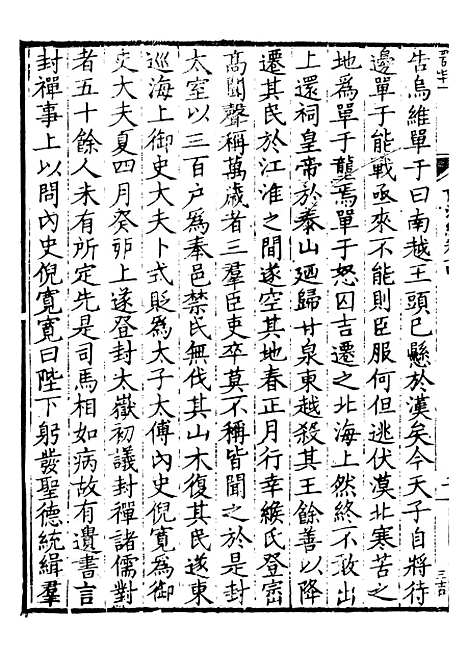 告烏維單于曰南越王頭已懸於漢矣今天子自將待
邊單于能戰亟來不能則臣服何但逃伏漠北寒苦之
地爲單于讋焉單于怒囚吉遷之北海上然終不敢出
上還祠皇帝於泰山廼歸甘泉東越殺其王餘善以降
遷其民於江淮之間遂空其地春正月行幸緱氏登密
高聞聲稱萬歲者三羣臣吏卒莫不稱皆聞之於是封
太室以三百户爲奉邑禁民無伐其山木復其民遂東
巡海上御史大夫卜式貶爲太子太傅內史倪寬爲御
史大夫夏四月癸卯上遂登封太嶽初議封禪諸儒對
者五十餘人未有所定先是司馬相如病故有遺書言
封禪事上以問內史倪寬寬曰陛下躬發聖德統緝羣